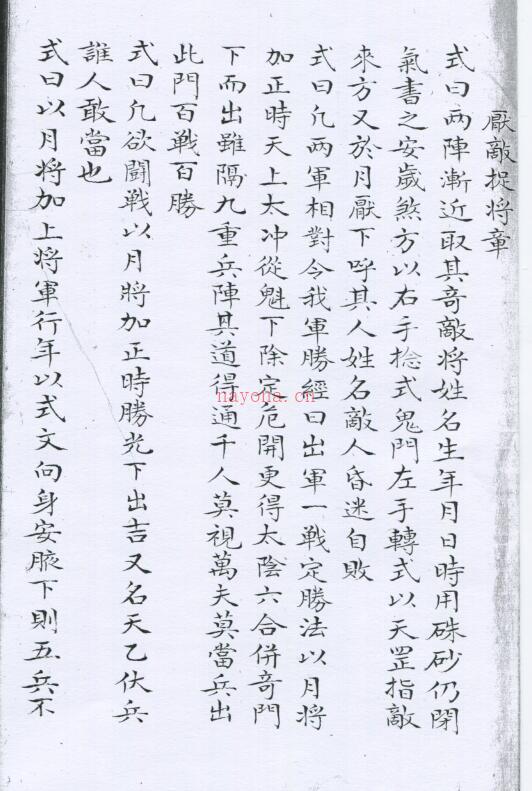 厭敵捉将章
式曰两陣漸近取其奇敵将姓名生年月日時用硃砂仍閉
氣書之安歲煞方以右手捻式鬼門左手轉式以天罡指敵
來方又於月厭下呼其人姓名敵人昏迷自敗
式曰凡两軍相對今我軍勝經曰出軍一戰定勝法以月将
加正時天上太冲從魁下除定危開更得太陰六合併奇門
下而出雖隔九重兵陣其道得通千人莫視萬夫莫當兵出
此門百戦百勝
式曰凡欲闘戦以月將加正時勝光下出吉又名天乙伏兵
誰人敢當也
式曰以月将加上将軍行年以式文向身安腋下則五兵不
nayona.cn